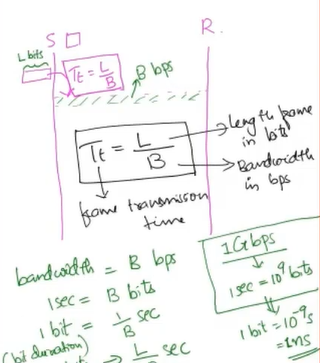 S
R.
L bits
Tt = L/B
B bps
Tt = L/B
Length frame
in bits
Bandwidth
in bps
frame transmission
time
bandwidth = B bps
1 sec = B bits
1 bit = 1/B sec
(bit duration)
⇒ L/B sec
1 Gbps
1 sec = 10⁹ bits
1 bit = 10⁻⁹ s
= 1 ns